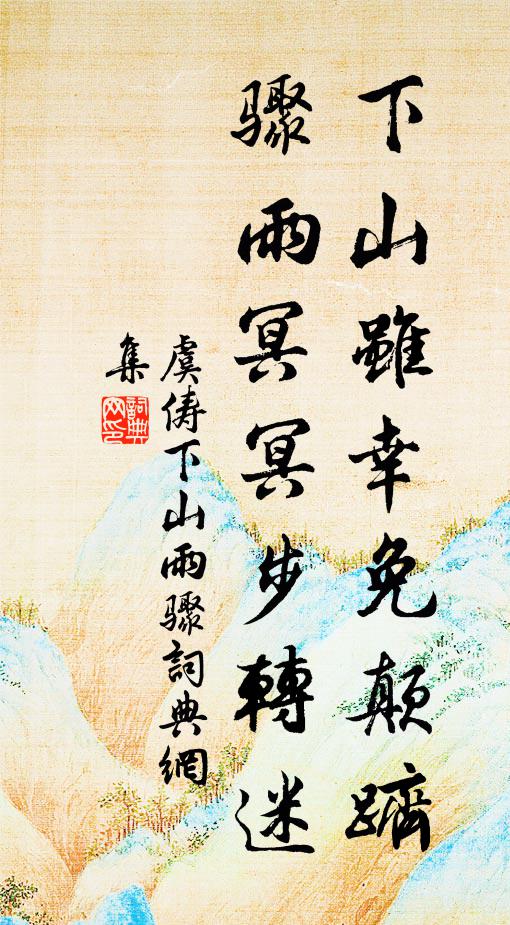 下山雖幸免顛躋
驟雨冥冥步轉迷
虞儔下山雨驟詞典網
集
詞典网印